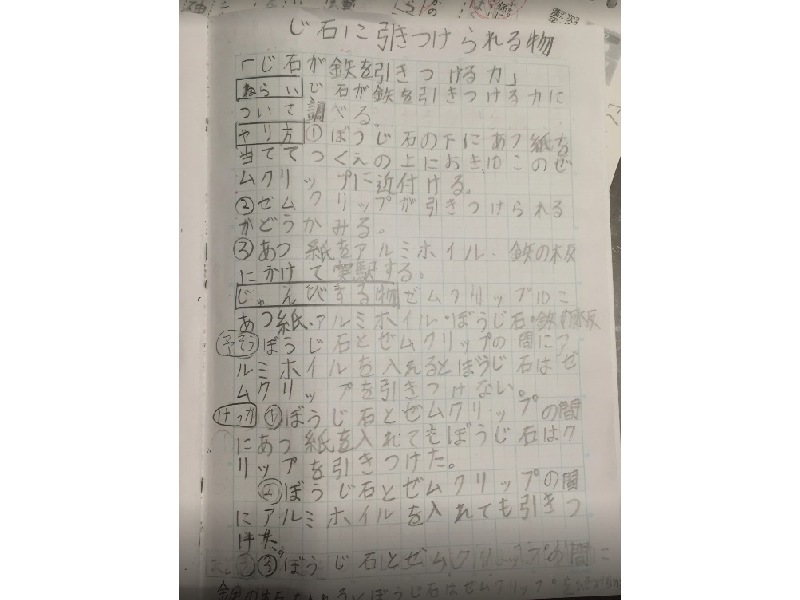 じ石に引きつけられる物
「じ石が鉄を引きつける力」
ねらい じ石が鉄を引きつける力に
ついて調べる。
やり方 ①ぼうじ石の下にあつ紙を
当ててつくえの上におき10このゼ
ムクリップに近付ける。
②ゼムクリップが引きつけられる
かどうかみる。
③あつ紙をアルミホイル、鉄の板
にかけて実験する。
じゅんびする物 ゼムクリップ10こ
あつ紙・アルミホイル・ぼうじ石・鉄の板
よそう ぼうじ石とゼムクリップの間にア
ルミホイルを入れるとぼうじ石はゼ
ムクリップを引きつけない。
けっか ①ぼうじ石とゼムクリップの間
にあつ紙を入れてもぼうじ石はク
リップを引きつけた。
②ぼうじ石とゼムクリップの間
にアルミホイルを入れても引きつ
けた。
③ぼうじ石とゼムクリップの間に
ぼうじ石はゼムクリップを